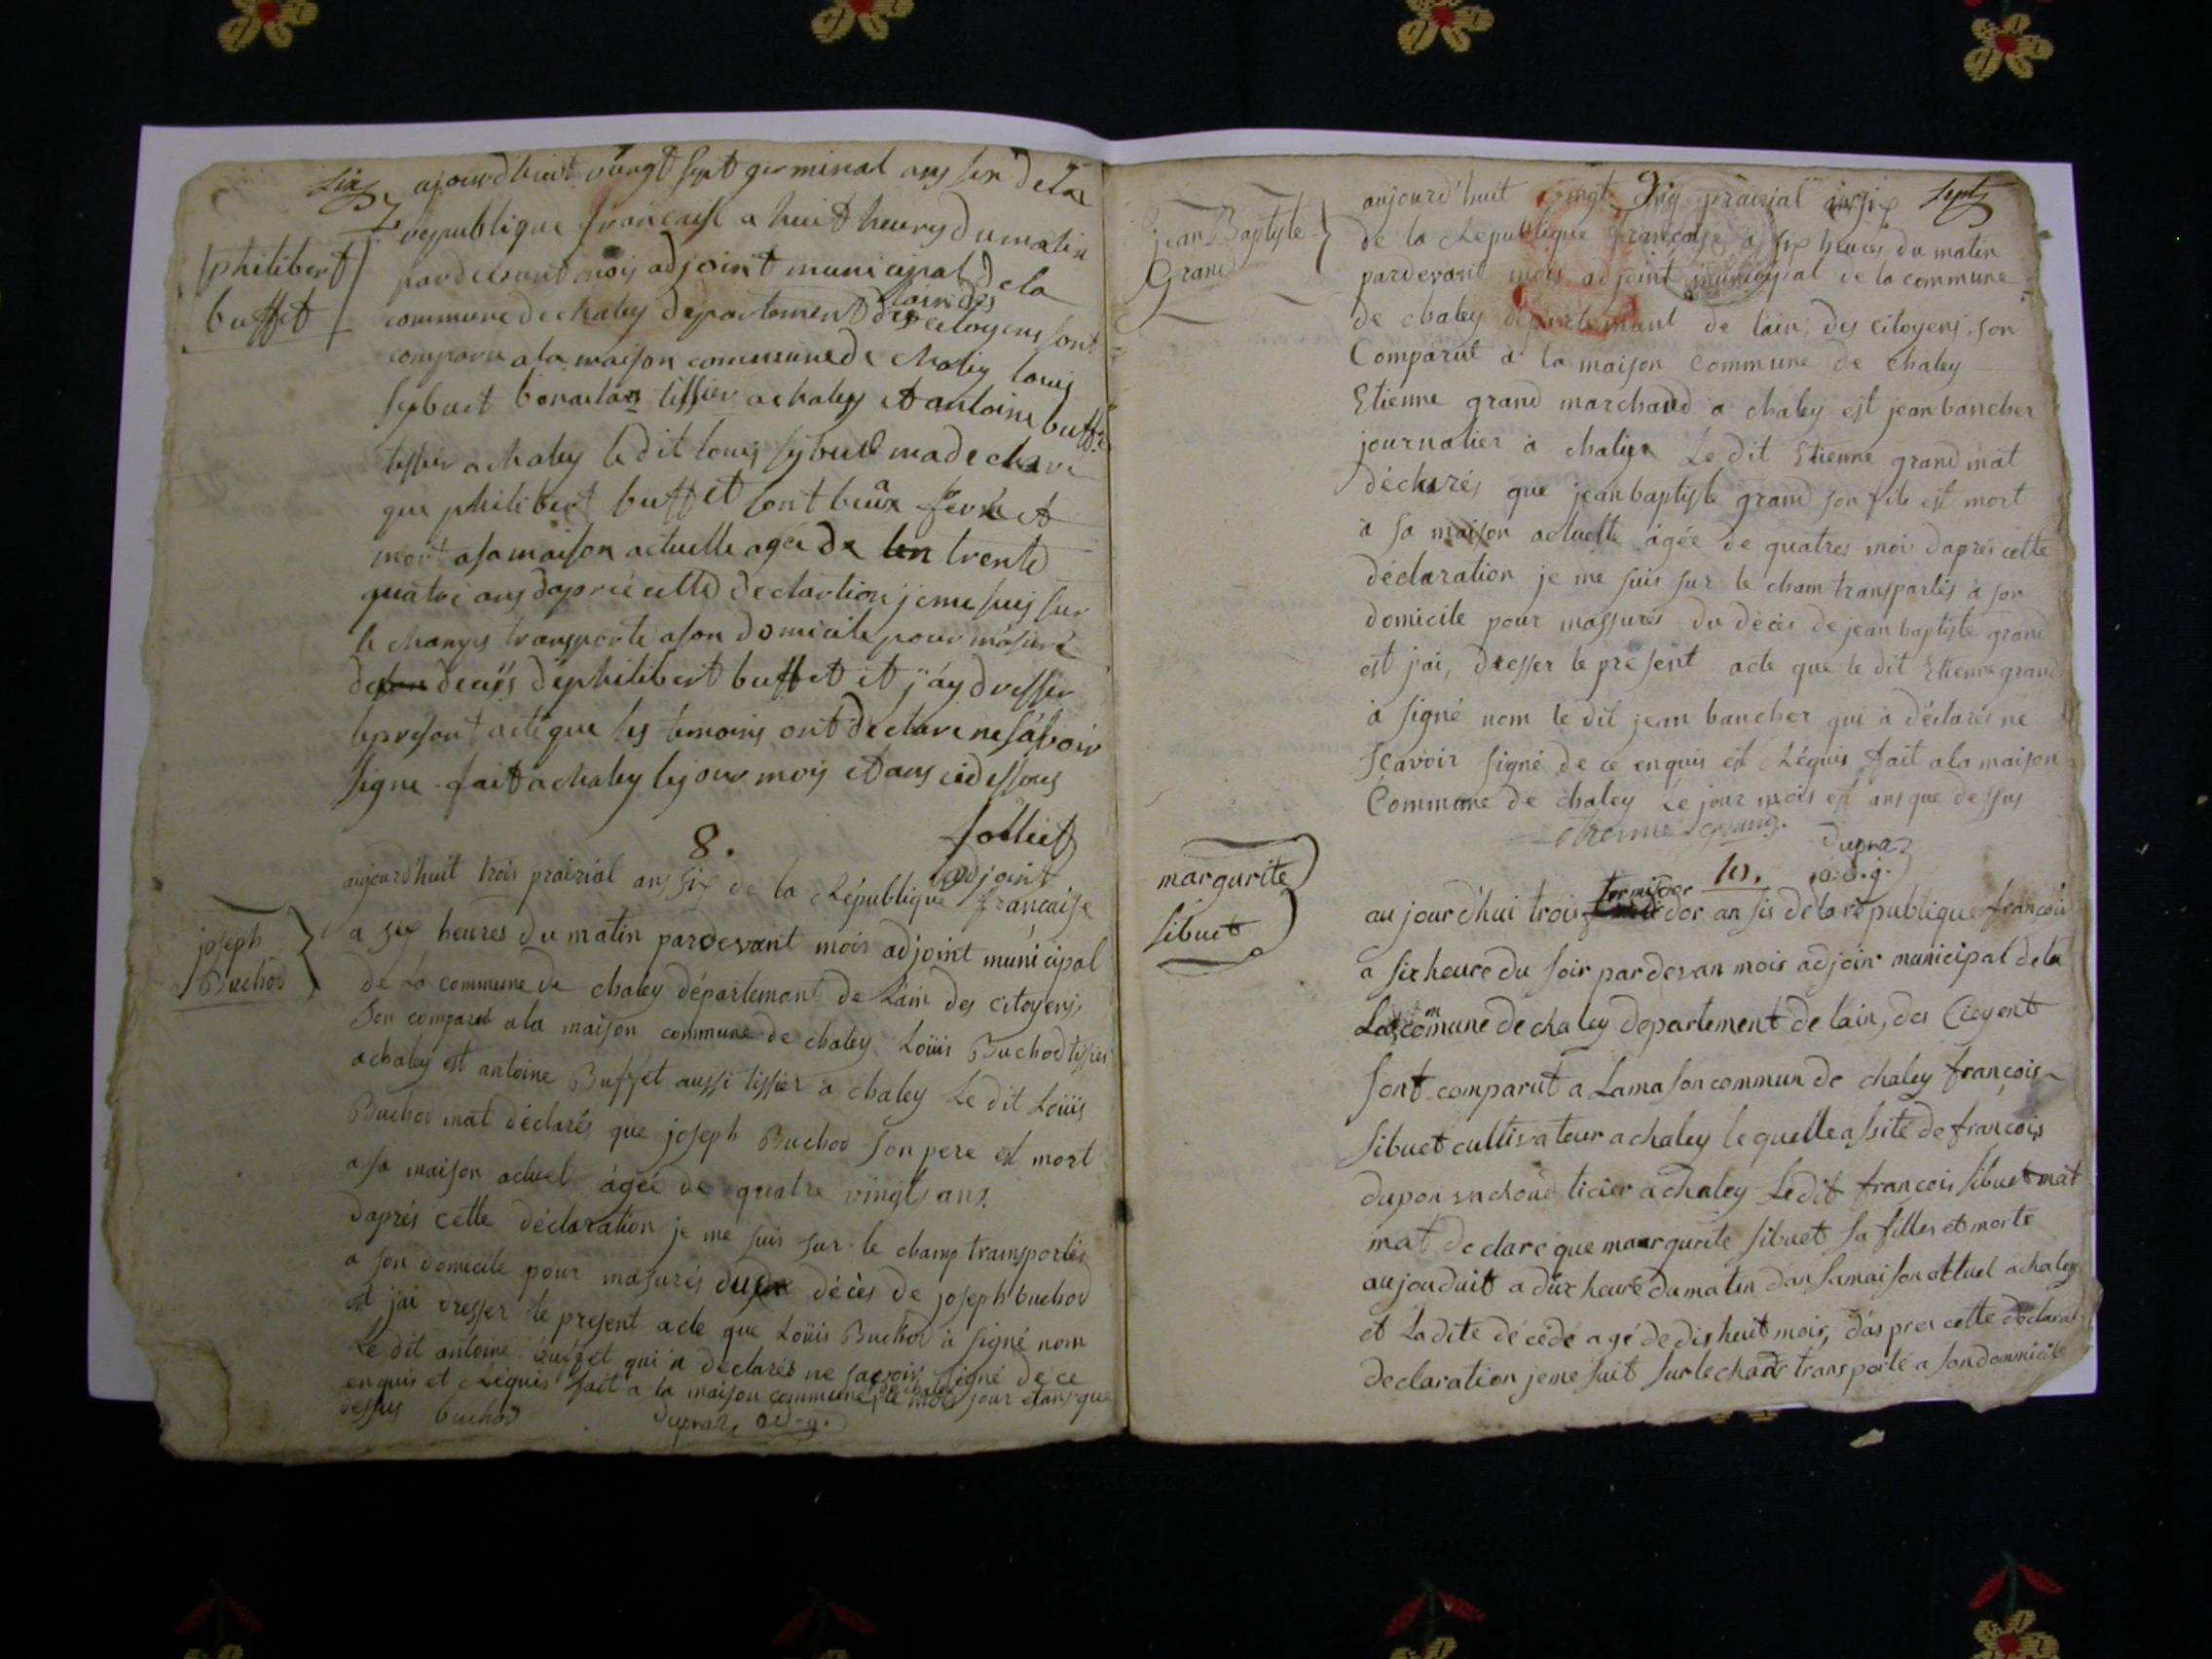 six
7
philibert
buffet
ajourdhuit vingt sept germinal ans six dela
republique francaise a huit heurs du matin
pardevant mois adjoint municipal dela
commune de chaley departement
lain des
citoyens sont
comparu a la maison commune de chaley louis
sybuet tissier a chaley et antoine buffet
tissier a chaley ledit louis sybuet ma declare
que philibert buffet sont et
mort asa maison actuelle agée de trente
quatre ans daprée cette declartion je me suis sur
le champs transporte ason domicile pour masuré
deceés dephilibert buffet et jäy dresser
le present acte que les temoins ont declare ne savoir
signe fait a chaley le jour mois et ans cidessous
solliet
adjoint
8.
joseph
Buchod
aujourd'huit trois prairial ans six de la République française
a six heures du matin pardevant mois adjoint municipal
de la commune de chaley département de Lain des citoyens
Son comparut a la maison commune de chaley Loüis Buchod tissier
a chaley est antoine Buffet aussi tissier a chaley Le dit Loüis
Buchod mat déclarés que joseph Buchod son pere est mort
a sa maison actuel ágée de quatre vingts ans.
daprés cette déclaration je me suis sur le champ transportés
a son domicile pour masurés du décès de joseph buchod
est jai dresser le present acte que Loüis Buchod à signé nom
Le dit antoine buffet qui a declarés ne sacvoir signé de ce
enquis et Réquis fait a la maison commune de chaley le mois jour et ans que
dessus buchod dupraz ad.g.
septs
9
jean Baptiste
Grand
aujourd'huit vingt prairial ans six
de la République française a six heures du matin
pardevant mois adjoint municipal de la commune
de chaley département de lain, des citoyens son
Comparut à la maison commune de chaley
Etienne grand marchand a chaley est jean bancher
journalier à chaley Le dit Etienne grand mat
déclarés que jean baptiste grand son fils est mort
à sa maison actuelle ágée de quatres moi daprés cette
déclaration je me suis sur le cham transportés à son
domicile pour massurés du décés de jean baptiste grand
est jai, dresser le présent acte que le dit Etienne grand
à signé nom le dit jean bancher qui à déclarés ne
Scavoir signé de ce enquis est Réquis fait a la maison
Commune de chaley Le jour mois est ans que dessus
dupraz
a.d.g.
10.
margurite
sibuet
termidor
au jourd'hui trois dor an sis de la république françois
a six heure du soir par devan mois adjoin municipal de la
La commune de chaley departement de lain, des Cieyent
sont comparut a La mason commun de chaley françois
sibuet cultivateur a chaley le quelle assité de françois
dupon vachoud ticier a chaley Ledit francois sibuet mat
mat declaré que maurgurite sibuet sa filles et morte
aujouduit a dix heure du matin dan samaison attuel a chaley
et Ladite décédé agé de dis huit mois, daspres cette declarat
declaration je me suit sur le chant transporté a son dommicile